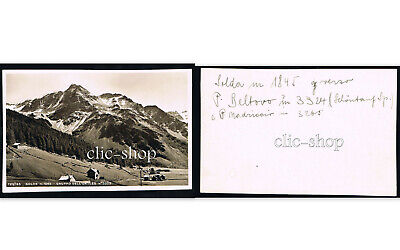 clic-shop
SOLDA M. 1845 - GRUPPO DELL'ORTLES
Solda m 1845 verso
P. Beltovo m 3324 (Schöntauf Sp.)
e P. Madriccio - 3265
clic-shop